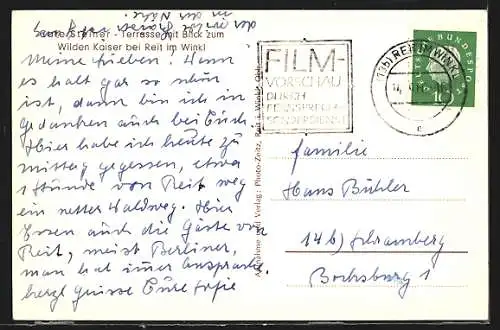 der in der
in der Nähe.
Terrasse mit Blick zum
Wilden Kaiser bei Reit im Winkl
Meine Lieben! Wenn
es halt gar so schön
ist, dann bin ich in
Gedanken auch bei Euch.
Hier habe ich heute zu
mittag gegessen, etwa
1 Stunde von Reit weg
ein netter Waldweg. Hier
Essen auch die Gäste von
Reit, meist Berliner,
man hat immer Ansprache.
herzl Grüsse Eure Sofie
Aufnahme und Verlag: Photo-Zeitz, Reit i. Winkl, Obb.
FILM-
VORSCHAU
DURCH
FERNSPRECH-
SONDERDIENST
(13b) REIT IM WINKL
c
DEUTSCHE BUNDESPOST
10
Familie
Hans Bühler
14b) Schramberg
Bochsburg 1